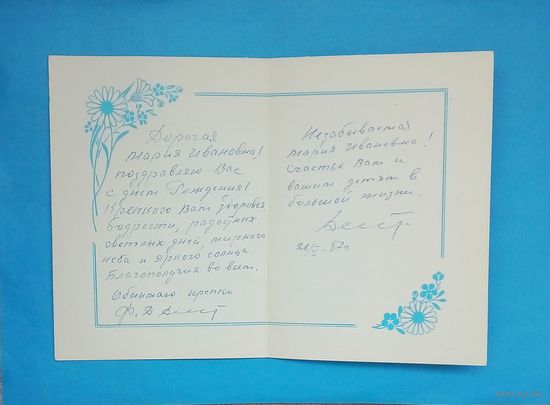 Дорогая
Мария Ивановна!
поздравляю Вас
с днем Рождения!
Крепкого Вам здоровья
бодрости, радостных
светлых дней, мирного
неба и яркого солнца.
Благополучия во всем.
Обнимаю крепко
Ф. Д
Незабываемая
Мария Ивановна!
Счастье Вам и
вашим детям в
большой жизни.
87г